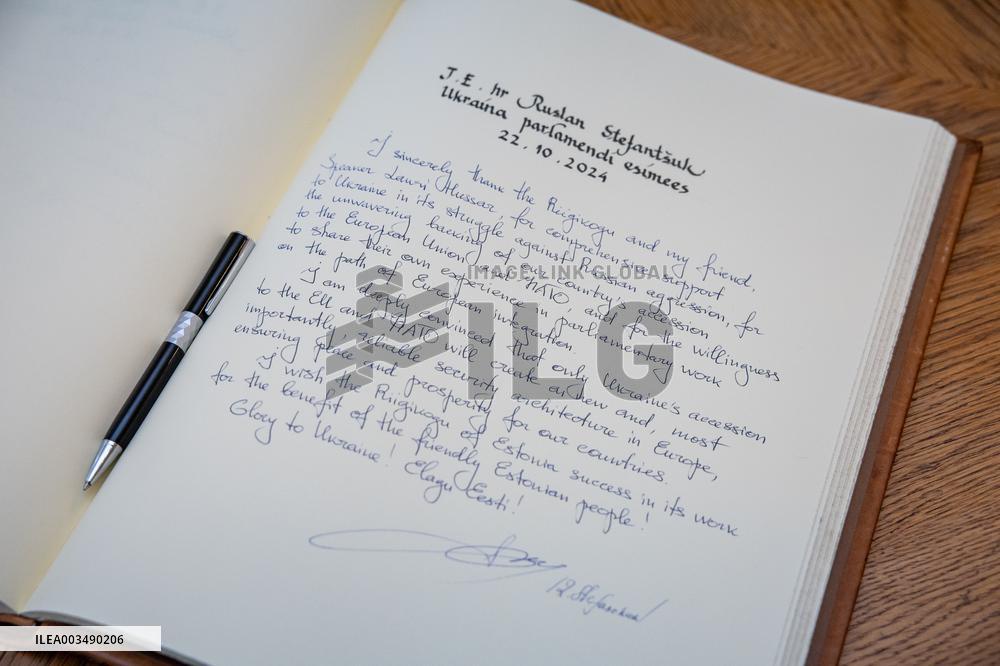 J.E. hr Ruslan Stefantšuk
Ukraina parlamendi esimees
22.10.2024
I sincerely thank the Riigikogu and my friend,
Speaker Lauri Hussar, for comprehensive support
to Ukraine in its struggle against Russian aggression, for
the unwavering backing of our country's accession
to the European Union and NATO, and for the willingness
to share their own experience in parliamentary work
on the path of European integration.
I am deeply convinced that only Ukraine's accession
to the EU and NATO will create a new and, most
importantly, reliable security architecture in Europe,
ensuring peace and prosperity for our countries.
I wish the Riigikogu of Estonia success in its work
for the benefit of the friendly Estonian people!
Glory to Ukraine! Elagu Eesti!
R. Stefanchuk
IMAGE LINK GLOBAL
ILG
ILEA003490206